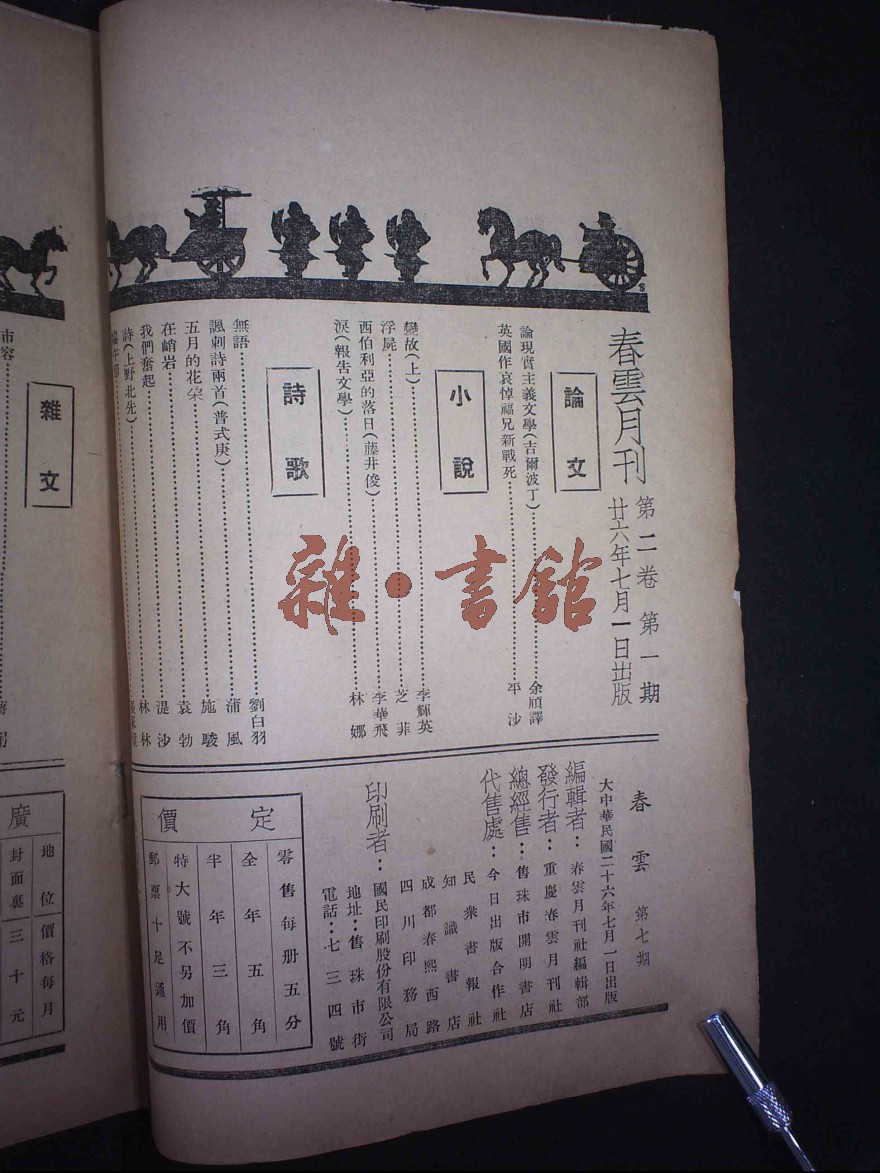 春雲月刊
第二卷 第一期
廿六年七月一日出版
論文
論現實主義文學(吉爾波丁)……余頎譯
英國作哀悼福兄新戰死……平沙
小說
變故(上)……李輝英
浮屍……芝菲
西伯利亞的落日(藤井俊)……李華飛
淚(報告文學)……林娜
詩歌
無語……劉白羽
諷刺詩兩首(普式庚)……蒲風
五月的花朵……施駿
在峭岩……袁勃
我們奮起……湜沙
詩(上野北先)……林林
雜文
市容
春雲 第七期
大中華民國二十六年七月一日出版
編輯者:春雲月刊社編輯部
發行者:重慶春雲月刊社
總經售:售珠市開明書店
代售處:今日出版合作社
民衆書報社
知識書店
成都春熙西路
四川印務局
印刷者:國民印刷股份有限公司
地址:售珠市街
電話:七三四號
定價
零售每册五分
全年五角
半年三角
特大號不另加價
郵票十足通用
廣
地位 價格每月
封面裏 三十元
雜·書舘